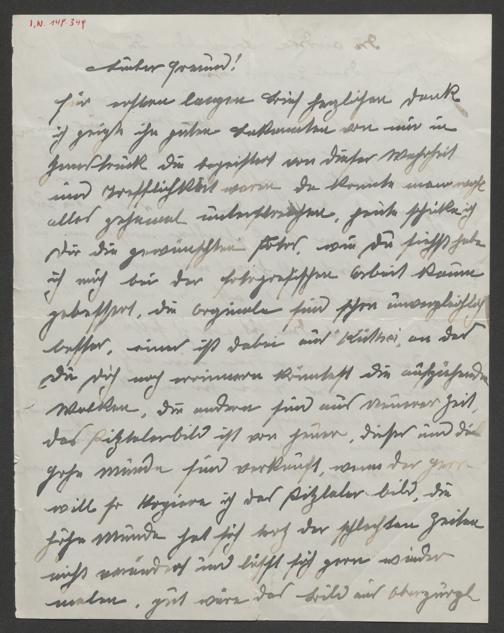 I.N. 149.349
Lieber Freund!
für ersten langen Brief herzlichen Dank
ich zeigte ihn guten Bekannten von mir in
Innsbruck die begeistert von dieser Wahrheit
und Trefflichkeit waren da konnte man wohl
alles zehnmal unterstreichen, heute schicke ich
Dir die gewünschten Fotos, wie Du siehst habe
ich mich bei der fotografischen Arbeit kaum
gebessert, die Orginale sind schon unvergleichlich
besser, eines ist dabei aus Kühtei, an das
Du Dich noch erinnern könntest die aufziehenden
Wolken, die andern sind aus neuerer Zeit,
das Pitztalerbild ist von heuer, dieses und die
hohe Munde sind verkauft, wenn der
will so kopiere ich das Pitztaler bild, die
hohe Munde hat sich trotz der schlechten Zeiten
nicht verändert und läßt sich gern wieder
malen, gut wäre das Bild aus Obergurgl